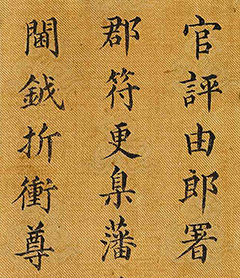 官評由郎署
郡符更臬藩
閫鉞折衝尊